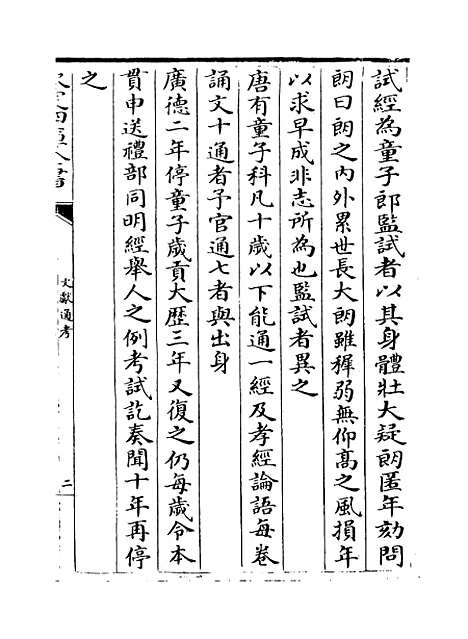 試經為童子郎監試者以其身體壯大疑朗匿年劾問
朗曰朗之內外累世長大朗雖穉弱無仰髙之風損年
以求早成非志所為也監試者異之
唐有童子科凡十歲以下能通一經及孝經論語每卷
誦文十通者予官通七者與出身
廣德二年停童子歲貢大歴三年又復之仍每歲令本
貫申送禮部同明經舉人之例考試訖奏聞十年再停
之
文獻通考
二